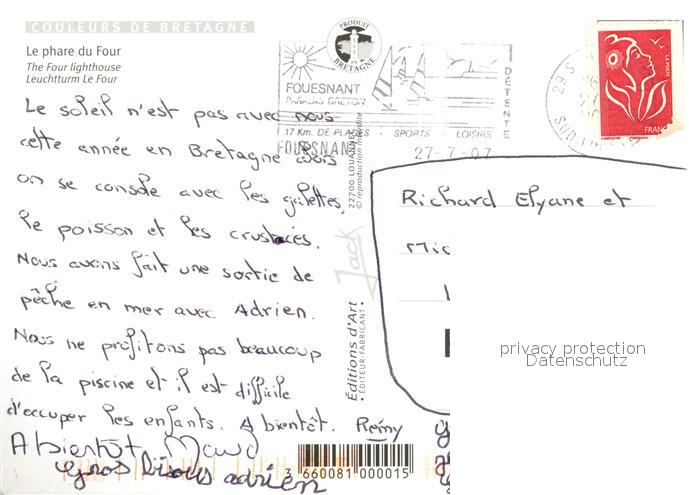 COULEURS DE BRETAGNE
Le phare du Four
The Four lighthouse
Leuchtturm Le Four
Le soleil n'est pas avec nous
cette année en Bretagne alors
on se console avec les galettes,
le poisson et les crustacés.
Nous avons fait une sortie de
pêche en mer avec Adrien.
Nous ne profitons pas beaucoup
de la piscine et il est difficile
d'occuper les enfants. A bientôt. Rémy
A bientôt Maud
gros bisous adrien
PRODUIT
EN
BRETAGNE
FOUESNANT
17 Km. DE PLAGES - SPORTS LOISIRS
DÉTENTE
FOUESNANT
27-7-07
29 S
SUD
LA POSTE
FRANCE
22700 LOUANNEC
© reproduction interdite
Jack
Éditions d'Art
• ÉDITEUR-FABRICANT •
Richard Elyane et
privacy protection
Datenschutz
3 660081 000015